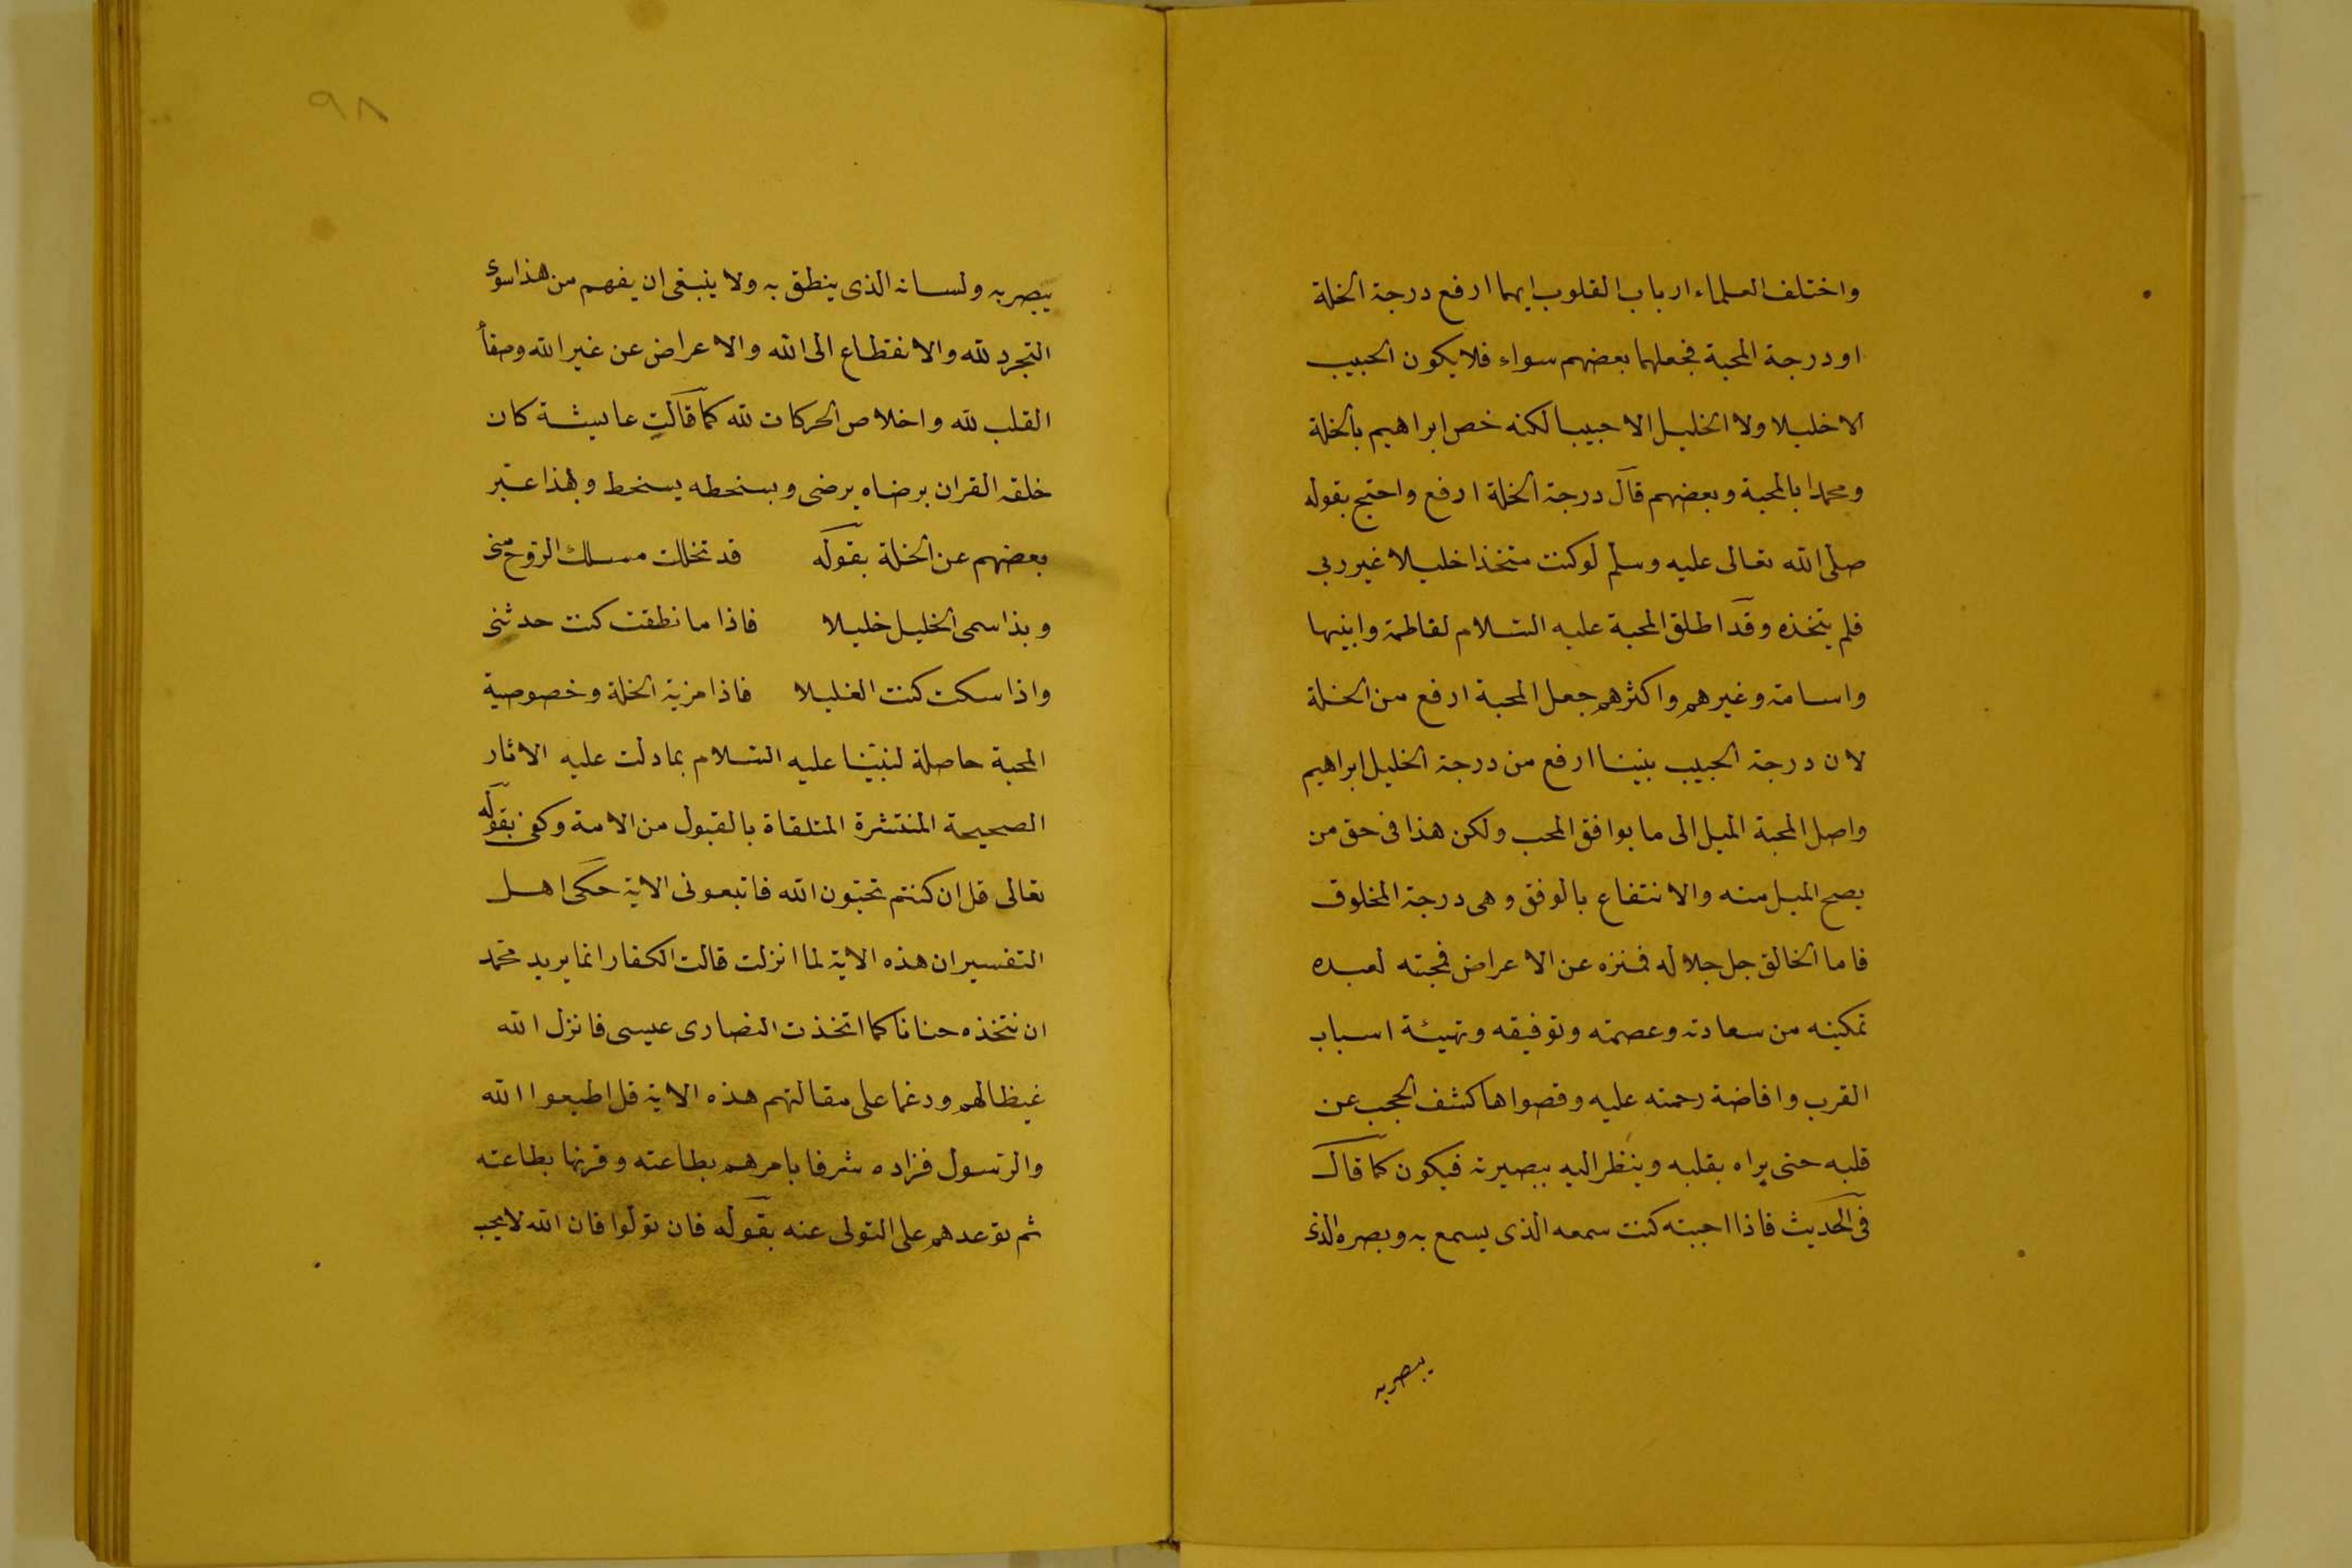 واختلف العلماء ارباب القلوب ايهما ارفع درجة الخلة
او درجة المحبة فجعلهما بعضهم سواء فلا يكون الحبيب
الا خليلا ولا الخليل الا حبيبا لكنه خص ابراهيم بالخلة
ومحمدا بالمحبة وبعضهم قال درجة الخلة ارفع واحتج بقوله
صلى الله تعالى عليه وسلم لو كنت متخذا خليلا غير ربى
فلم يتخذه وقد اطلق المحبة عليه السلام لفاطمة وابنيها
واسامة وغيرهم واكثرهم جعل المحبة ارفع من الخلة
لان درجة الحبيب نبينا ارفع من درجة الخليل ابراهيم
واصل المحبة الميل الى ما يوافق المحب ولكن هذا فى حق من
يصح الميل منه والانتفاع بالوفق وهى درجة المخلوق
فاما الخالق جل جلاله فمنزه عن الاعراض فمحبته لعبده
تمكينه من سعادته وعصمته وتوفيقه وتهيئة اسباب
القرب وافاضة رحمته عليه وقصواها كشف الحجب عن
قلبه حتى يراه بقلبه وينظر اليه ببصيرته فيكون كما قال
فى الحديث فاذا احببته كنت سمعه الذى يسمع به وبصره الذى
يبصر به
٩٨
يبصر به ولسانه الذى ينطق به ولا ينبغى ان يفهم من هذا سوى
التجرد لله والانقطاع الى الله والاعراض عن غير الله وصفأ
القلب لله واخلاص الحركات لله كما قالت عايشة كان
خلقه القران برضاه يرضى وبسخطه يسخط وبهذا عبّر
بعضهم عن الخلة بقوله قد تخللت مسلك الروح منى
وبذا سمى الخليل خليلا فاذا ما نطقت كنت حديثى
واذا سكت كنت الغليلا فاذا مزية الخلة وخصوصية
المحبة حاصلة لنبيّنا عليه السلام بما دلت عليه الاثار
الصحيحة المنتشرة المتلقاة بالقبول من الامة وكفى بقوله
تعالى قل ان كنتم تحبّون الله فاتبعونى الاية حكى اهل
التفسير ان هذه الاية لما انزلت قالت الكفار انما يريد محمّد
ان نتخذه حنانا كما اتخذت النصارى عيسى فانزل الله
غيظا لهم ورغما على مقالتهم هذه الاية قل اطيعوا الله
والرسول فزاده شرفا بامرهم بطاعته وقرنها بطاعته
ثم توعدهم على التولى عنه بقوله فان تولوا فان الله لا يحب